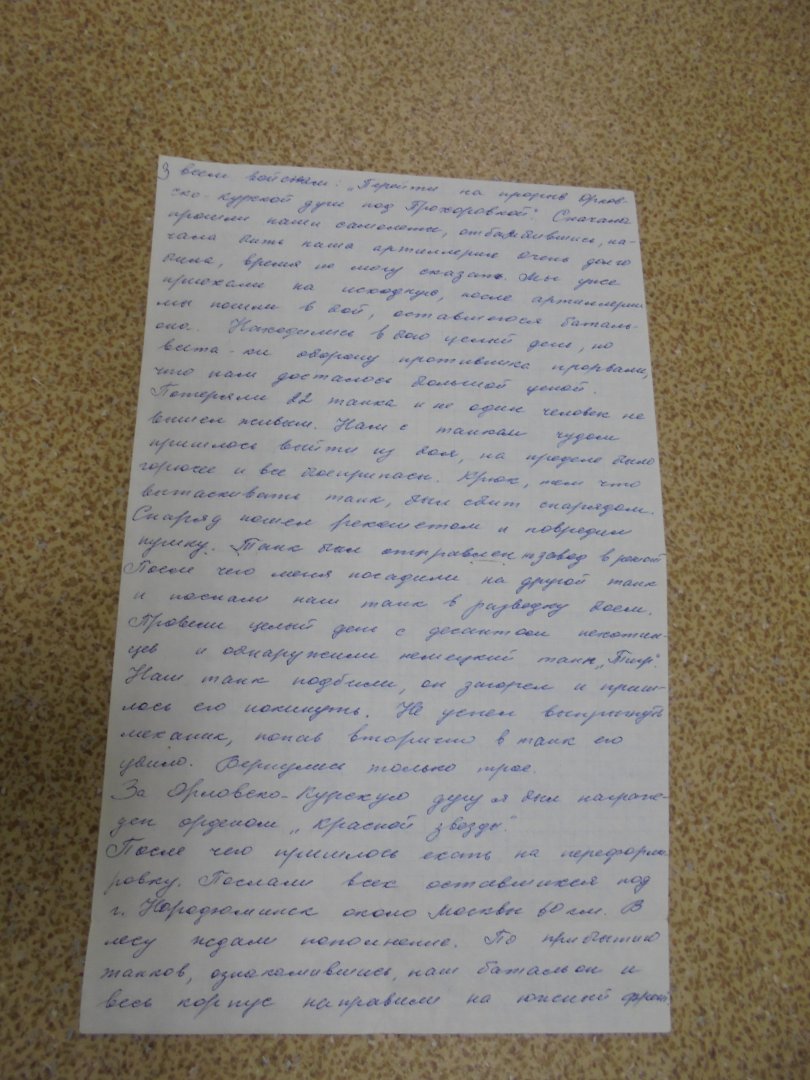 3 всем войскам: „Перейти на прорыв Орлов-
ско-курской дуги под Прохоровкой". Сначала
прошли наши самолеты, отбомбившись, на-
чала бить наша артиллерия очень долго
била, время не могу сказать. Мы уже
приехали на исходную, после артиллерии
мы пошли в бой, оставшегося баталь-
она. Находились в бою целый день, но
всета-ки оборону противника прорвали,
что нам досталось большой ценой.
Потеряли 22 танка и не один человек не
вышел живым. Нам с танком чудом
пришлось выйти из боя, на пределе было
горючее и все боеприпасы. Крюк, тем что
вытаскивать танк, был сбит снарядом.
Снаряд пошел рекошетом и повредил
пушку. Танк был отправлен взавод в ремонт
После чего меня посадили на другой танк
и послали наш танк в разводку боем.
Провели целый день с десантом пехотин-
цев и обнаружили немецкий танк „Тигр".
Наш танк подбили, он загорел и приш-
лось его покинуть. Не успел выпрыгнуть
механик, попав вторично в танк его
убило. Вернулись только трое.
За Орловско-Курскую дугу я был награж-
ден орденом „Красной звезды".
После чего пришлось ехать на переформи-
ровку. Послали всех оставшихся под
г. Нородюминск около Москвы 60 км. В
лесу ждали пополнение. По прибытию
танков, ознакомившись, наш батальон и
весь корпус направили на южный фронт